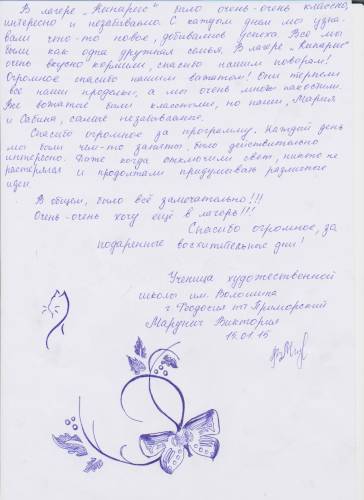 В лагере „Кипарис" было очень-очень классно,
интересно и незабываемо. С каждым днем мы узна-
вали что-то новое, добивались успеха. Все мы
были как одна дружная семья. В лагере „Кипарис"
очень вкусно кормили, спасибо нашим поварам!
Огромное спасибо нашим вожатым! Они терпели
все наши проделки, а мы очень много пакостили.
Все вожатые были классными, но наши, Мария
и Сабина, самые незабываемые.
Спасибо огромное за программу. Каждый день
мы были чем-то заняты, было действительно
интересно. Даже когда отключили свет, никто не
растерялся и продолжали придумывать различные
идеи.
В общем, было всё замечательно!!!
Очень-очень хочу ещё в лагерь!!!
Спасибо огромное, за
подаренные восхитительные дни!
Ученица художественной
школы им. Волошина
г. Феодосия пт Приморский
Марунич Виктория
15.01.15